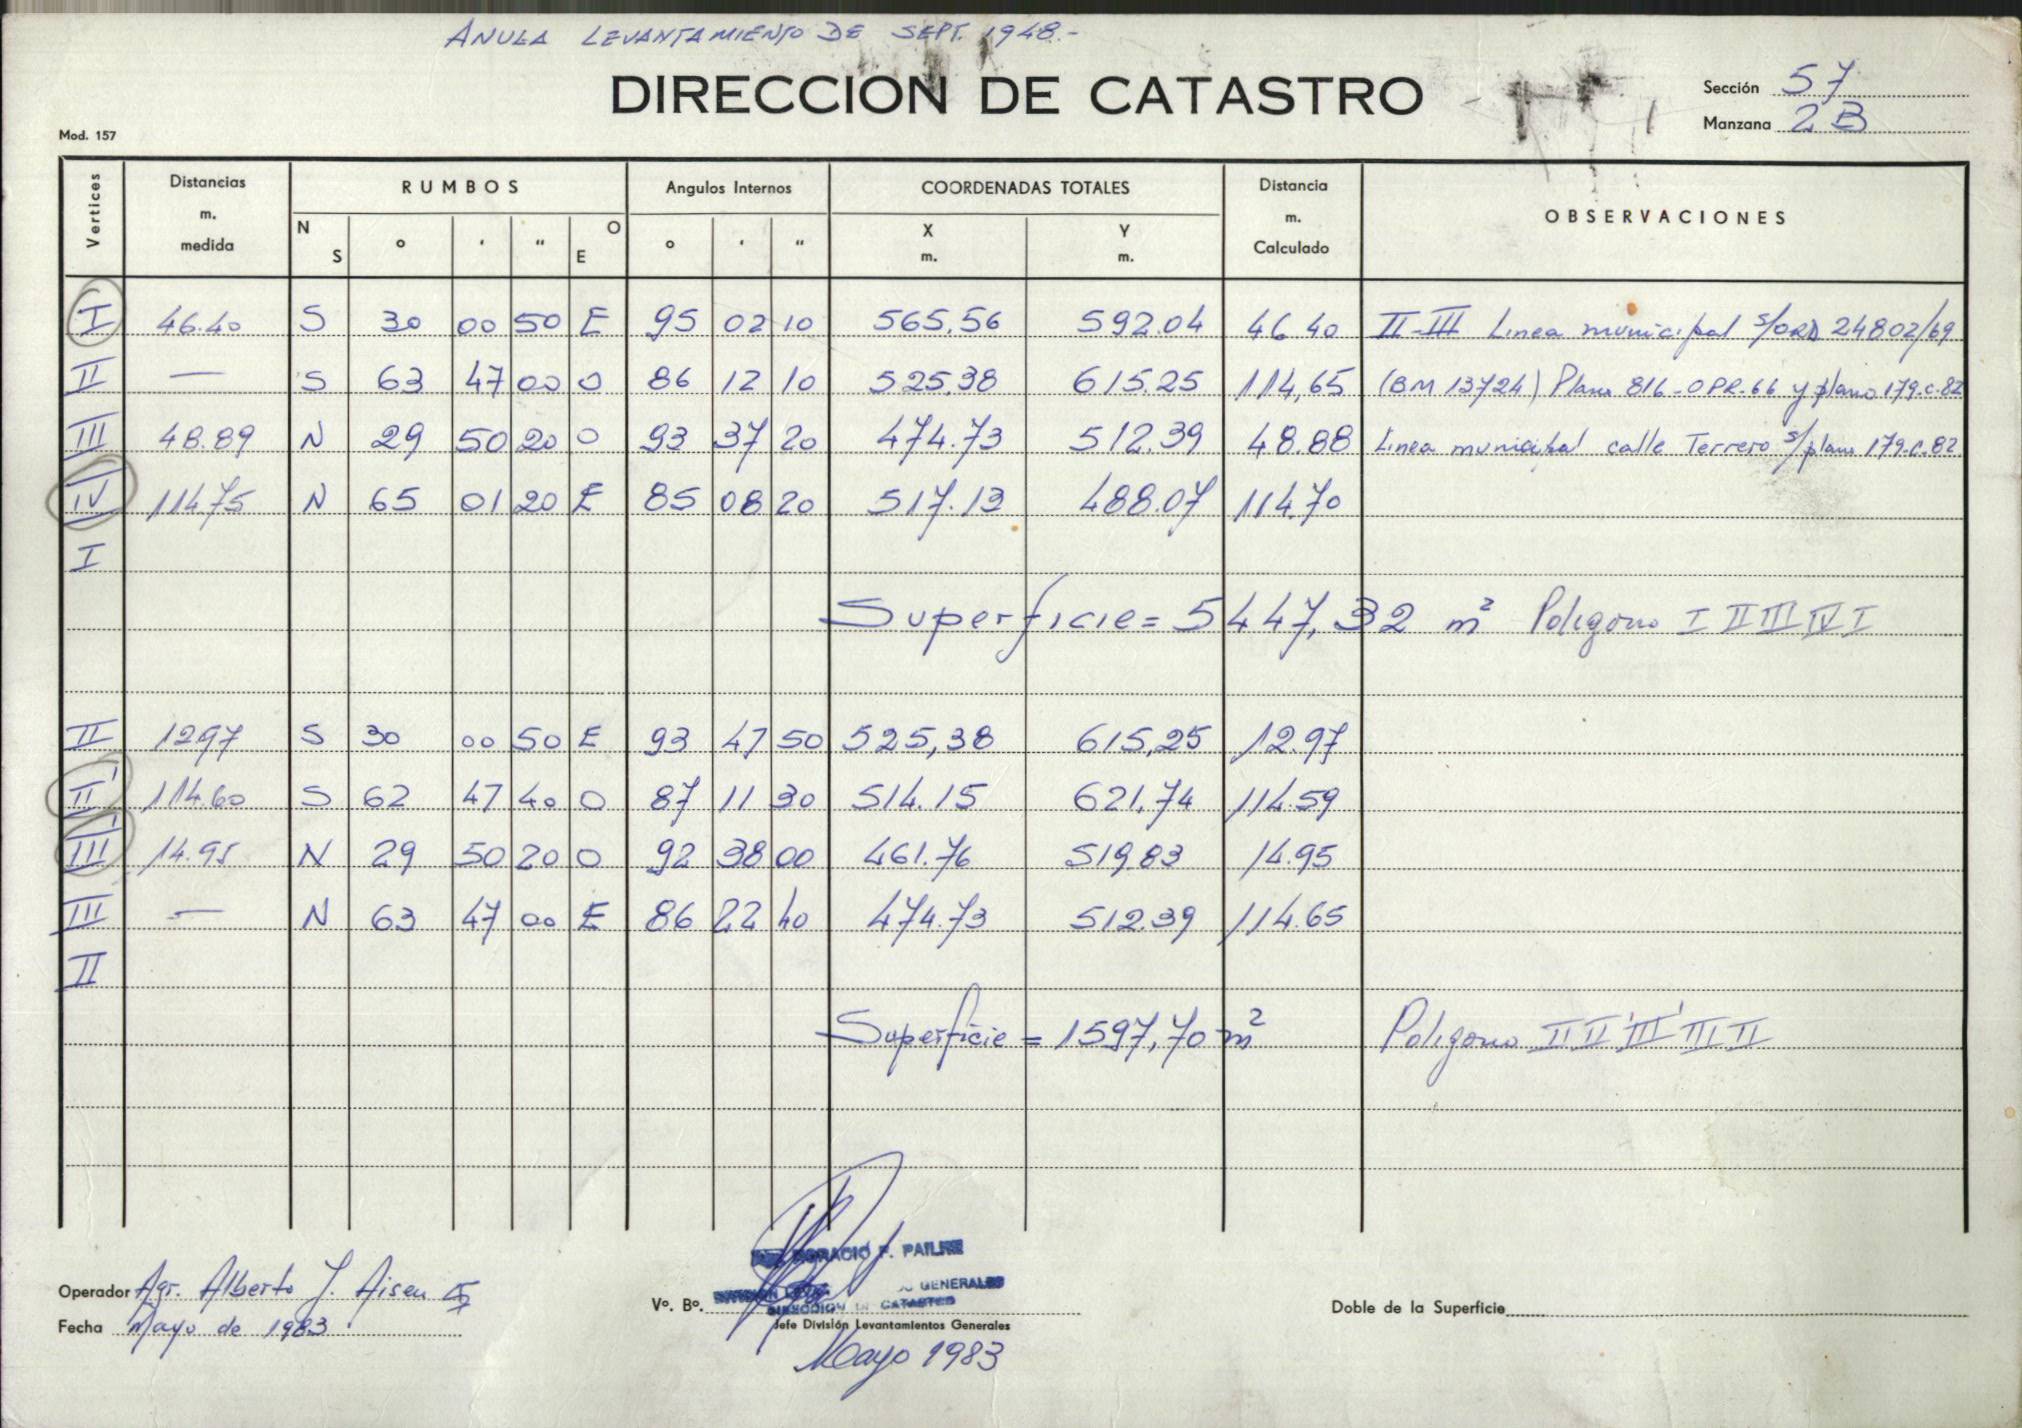 ANULA LEVANTAMIENTO DE SEPT. 1948.-
DIRECCION DE CATASTRO
Sección 57
Manzana 2B
Mod. 157
Vertices Distancias m. medida RUMBOS Angulos Internos COORDENADAS TOTALES Distancia m. Calculado OBSERVACIONES
N S ° ' " O E ° ' " X m. Y m.
I 46.40 S 30 00 50 E 95 02 10 565,56 592.04 46.40 II-III Linea municipal s/ORD 24802/69
II — S 63 47 00 O 86 12 10 525,38 615.25 114,65 (BM 13724) Plano 816-OPR-66 y plano 179.C.82
III 48.89 N 29 50 20 O 93 37 20 474.73 512.39 48.88 Linea municipal calle Terrero s/plano 179.C.82
IV 114.75 N 65 01 20 E 85 08 20 517.13 488.07 114.70
I
Superficie = 5447,32 m² Poligono I II III IV I
II 12.97 S 30 00 50 E 93 47 50 525,38 615,25 12.97
II' 114.60 S 62 47 40 O 87 11 30 514.15 621,74 114.59
III' 14.95 N 29 50 20 O 92 38 00 461.76 519.83 14.95
III — N 63 47 00 E 86 22 40 474.73 512.39 114.65
II
Superficie = 1597,70 m² Poligono II II' III' III II
HORACIO F.
GENERALES
DIRECCION DE CATASTRO
Operador Agr. Alberto J. Aisen
Vº. Bº.
Doble de la Superficie
Jefe División Levantamientos Generales
Fecha Mayo de 1983
Mayo 1983